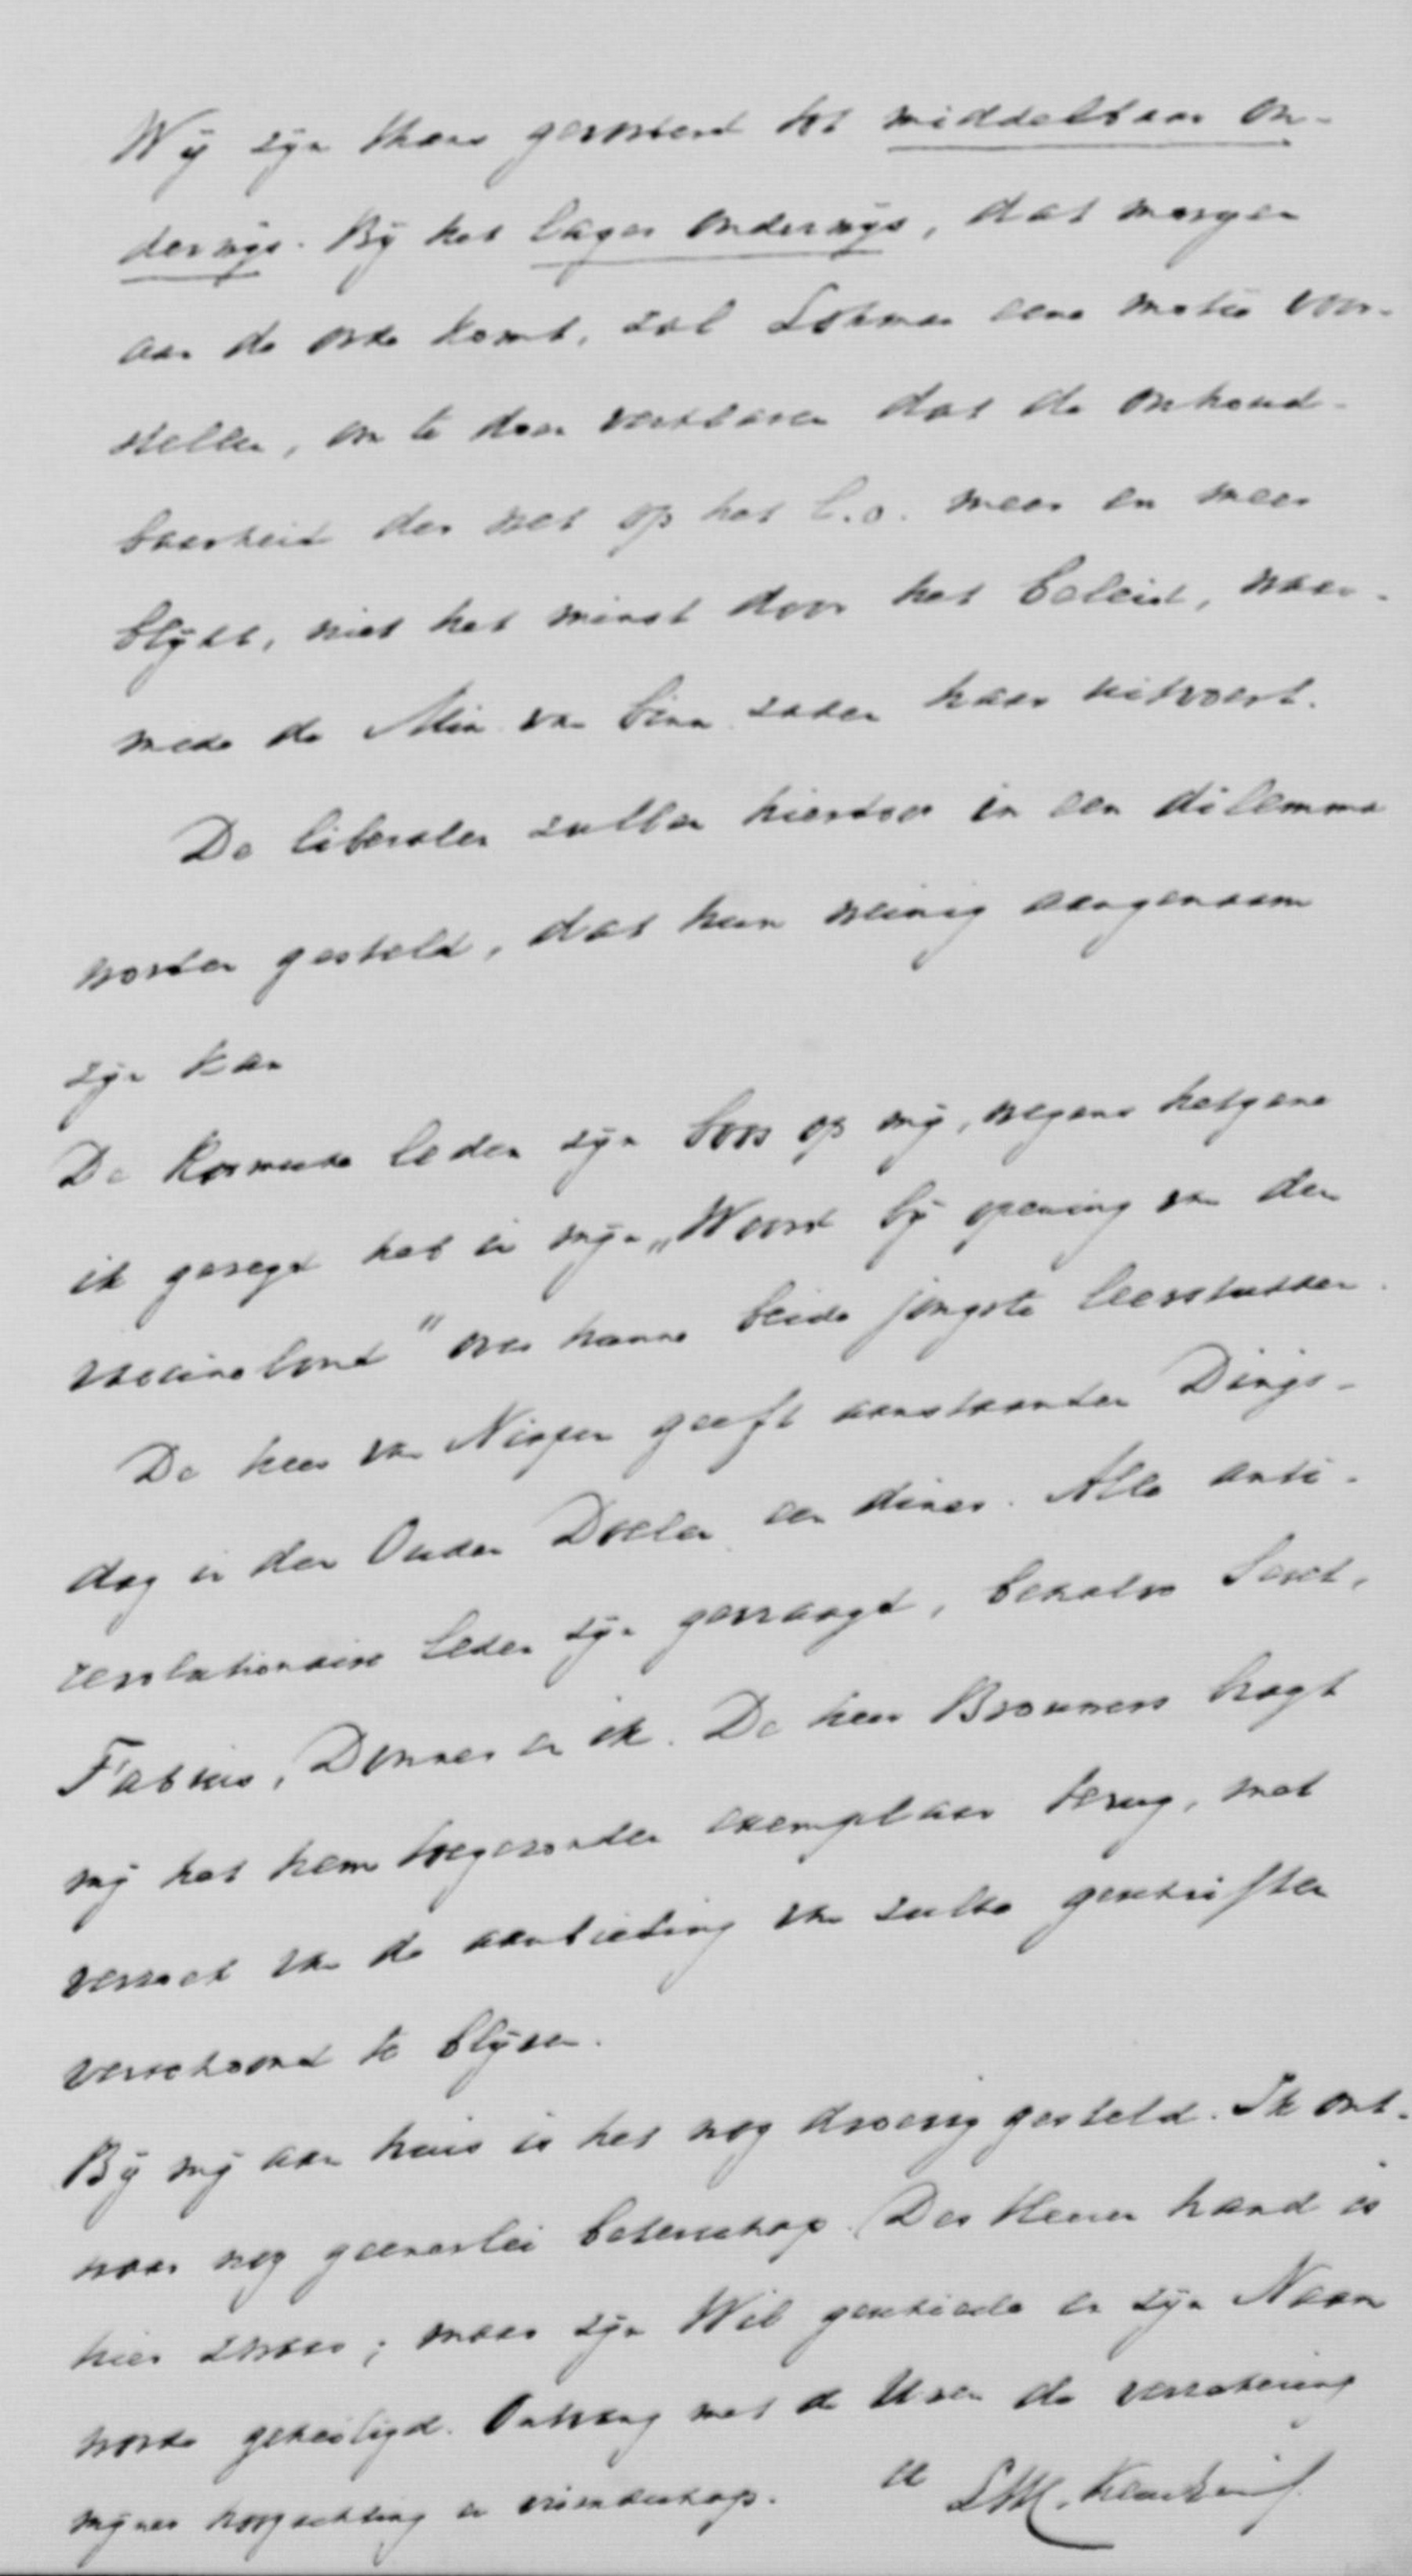 Wij zijn thans gevorderd tot middelbaar on-
derwijs. Bij het lager onderwijs, dat morgen
aan de orde komt, zal Lohman eene motie voor-
stellen, om te doen verklaren dat de onhoud-
baarheid der wet op het l.o. meer en meer
blijkt, niet het minst door het beleid, waar-
mede de Min. van binn. zaken haar uitvoert.
De liberalen zullen hierdoor in een dilemma
worden gesteld, dat hun weinig aangenaam
zijn kan
De Roomsche leden zijn boos op mij, wegens hetgene
ik gezegd heb in mijn „Woord bij opening van den
vaccinebond" over hunne beide jongste leerstukken.
De heer van Nispen geeft aanstaanden Dings-
dag in den Ouden Doelen een diner. Alle anti-
revolutionaire leden zijn gevraagd, behalve Seret,
Fabius, Donner en ik. De heer Brouwers bragt
mij het hem toegezonden exemplaar terug, met
verzoek van de aanbieding van zulke geschriften
verschoond te blijven.
Bij mij aan huis is het nog droevig gesteld. Ik ont-
waar nog geenerlei beterschap. Des Heeren hand is
hier zwaar; maar zijn Wil geschiede en zijn Naam
worde geheiligd. Ontvang met de Uwen de verzekering
mijner hoogachting en vriendschap.